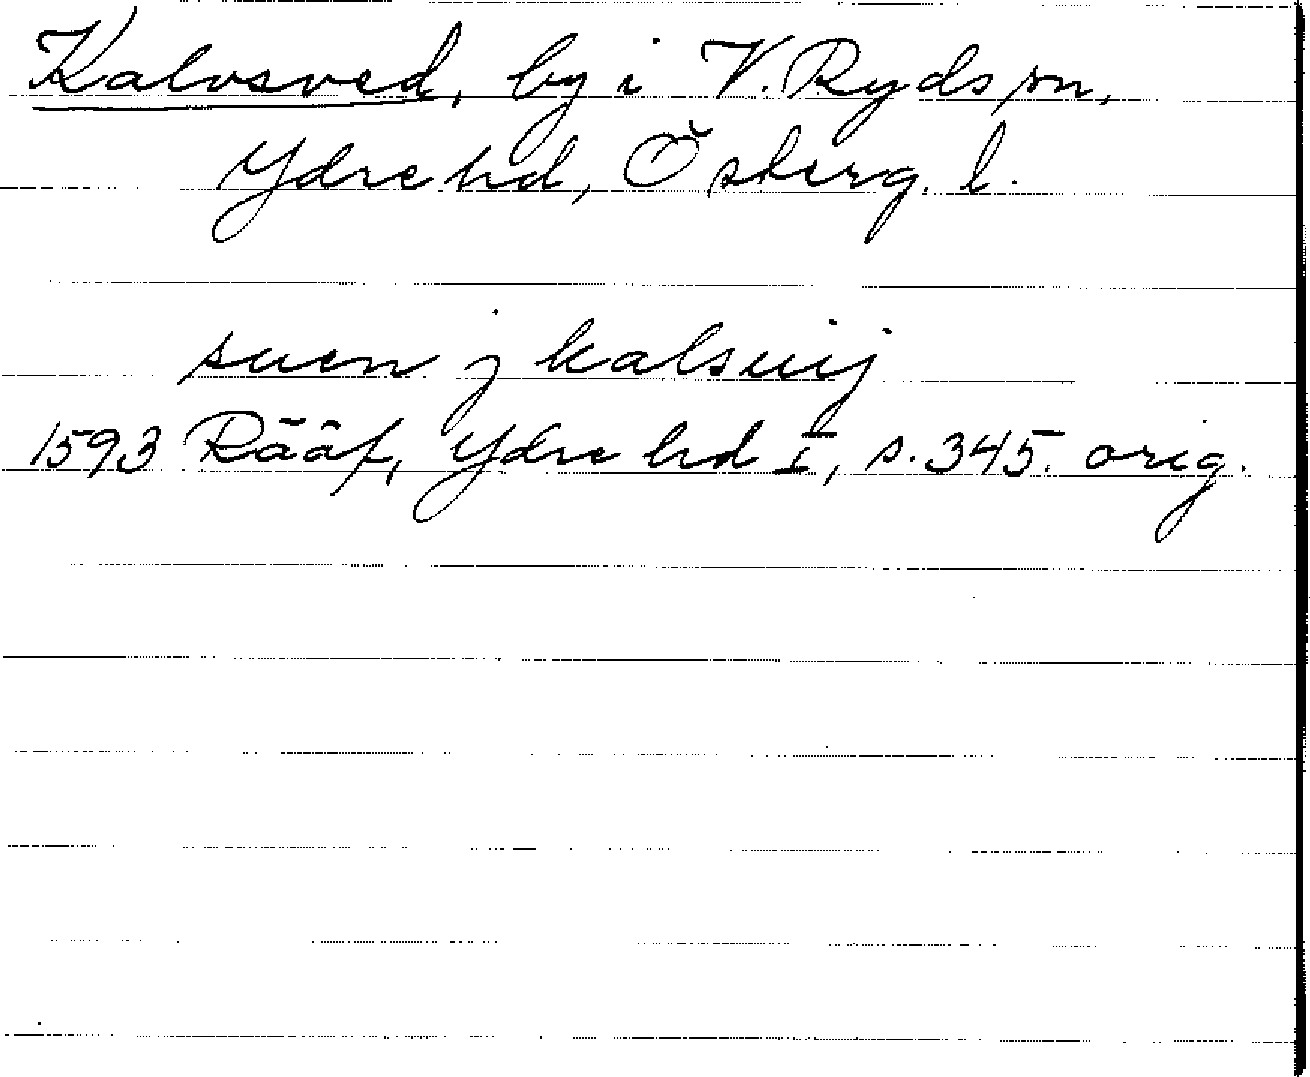 Kalvsved, by i V. Ryds sn,
Ydre hd, Österg. l.
suen j kalsuij
1593 Rääf, Ydre hd I, s. 345. orig.